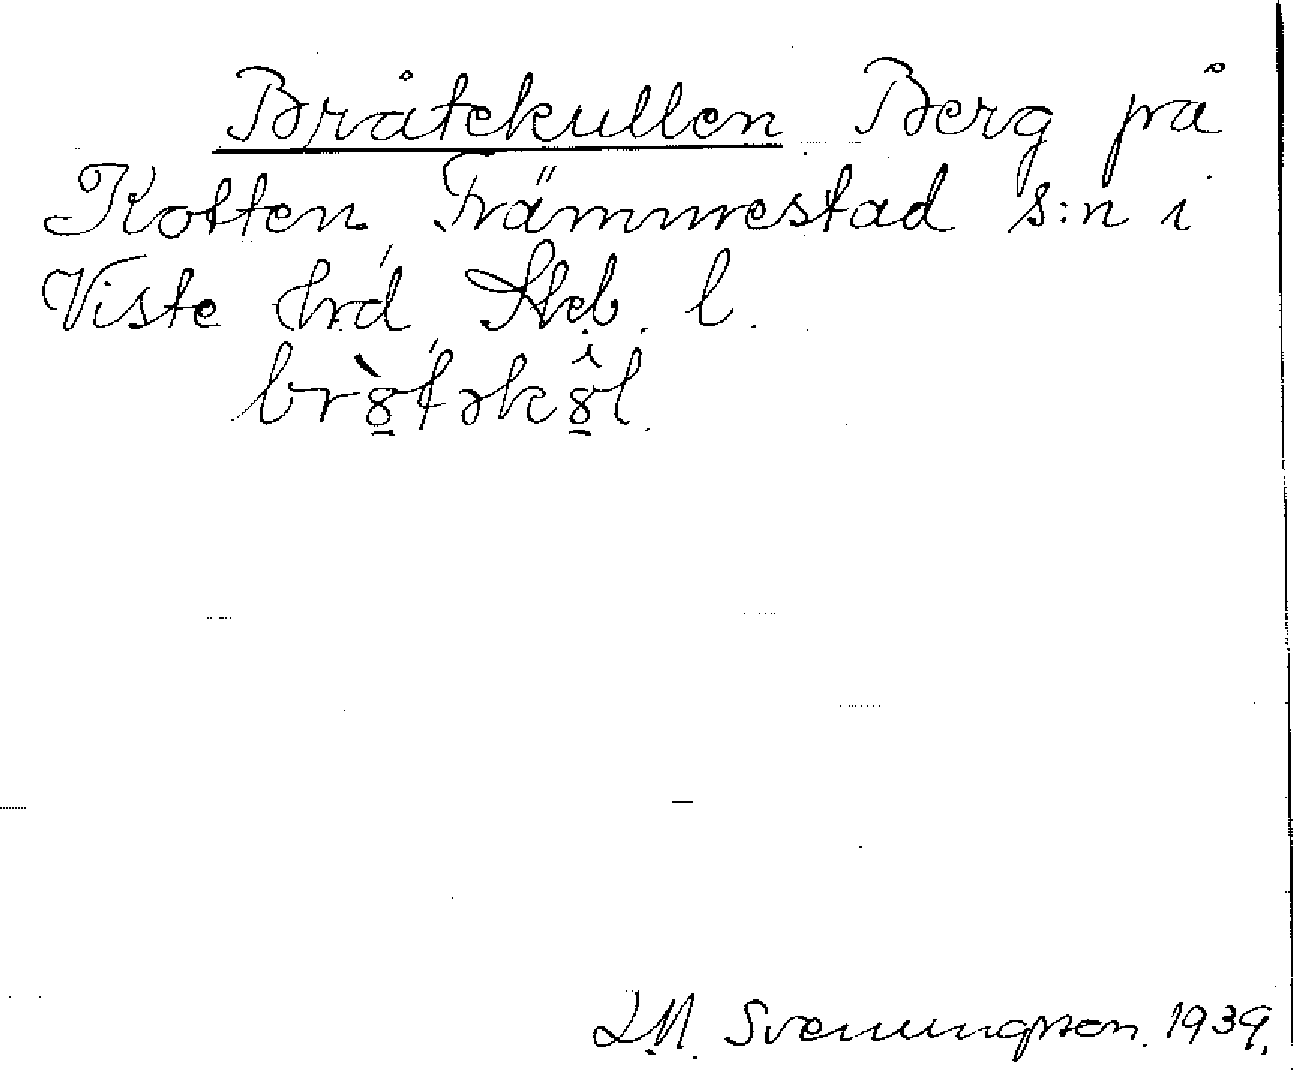 Bråtekullen Berg på
Kotten, Främmestad s:n i
Viste hrd, Skb. l.
br8̀tək8̂l.
L.M. Svenungsson. 1939.